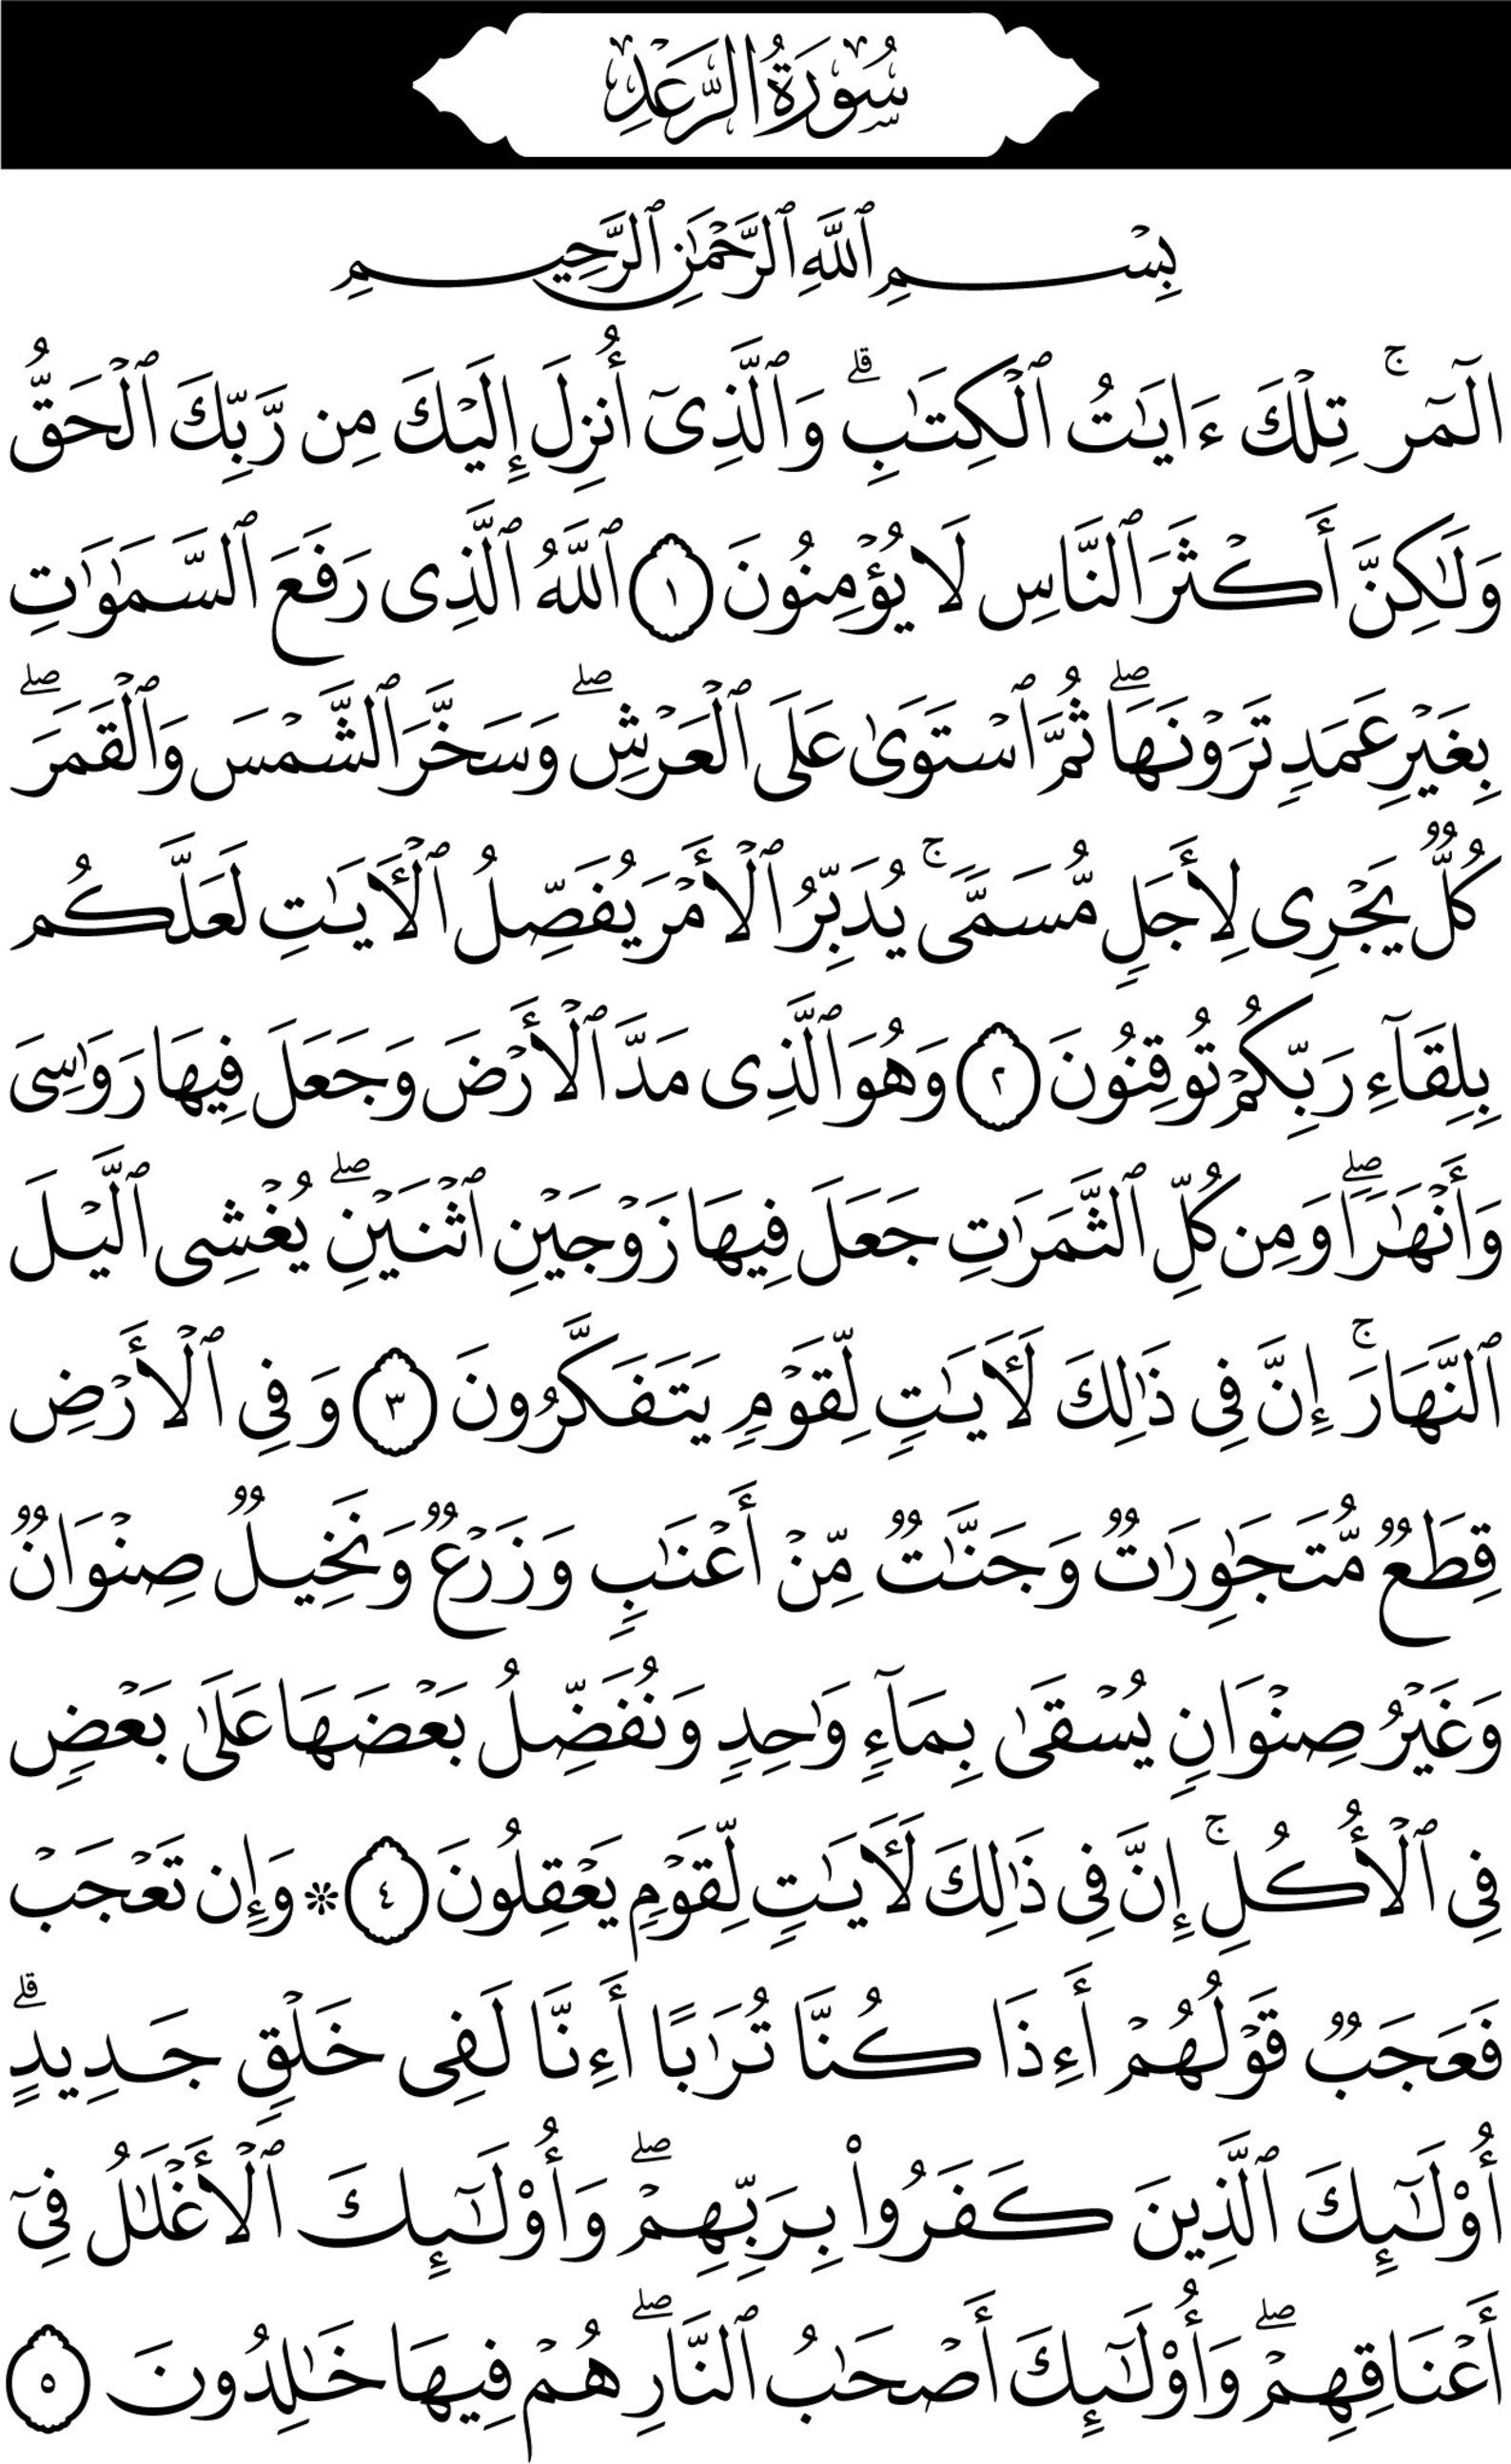 سُورَةُ الرَّعْدِ
بِسْمِ ٱللَّهِ ٱلرَّحْمَٰنِ ٱلرَّحِيمِ
الٓمٓرۚ تِلْكَ ءَايَٰتُ ٱلْكِتَٰبِۗ وَٱلَّذِىٓ أُنزِلَ إِلَيْكَ مِن رَّبِّكَ ٱلْحَقُّ
وَلَٰكِنَّ أَكْثَرَ ٱلنَّاسِ لَا يُؤْمِنُونَ ١ ٱللَّهُ ٱلَّذِى رَفَعَ ٱلسَّمَٰوَٰتِ
بِغَيْرِ عَمَدٍ تَرَوْنَهَاۖ ثُمَّ ٱسْتَوَىٰ عَلَى ٱلْعَرْشِۖ وَسَخَّرَ ٱلشَّمْسَ وَٱلْقَمَرَۖ
كُلٌّ يَجْرِى لِأَجَلٍ مُّسَمًّىۚ يُدَبِّرُ ٱلْأَمْرَ يُفَصِّلُ ٱلْأَيَٰتِ لَعَلَّكُم
بِلِقَآءِ رَبِّكُمْ تُوقِنُونَ ٢ وَهُوَ ٱلَّذِى مَدَّ ٱلْأَرْضَ وَجَعَلَ فِيهَا رَوَٰسِىَ
وَأَنْهَٰرًاۖ وَمِن كُلِّ ٱلثَّمَرَٰتِ جَعَلَ فِيهَا زَوْجَيْنِ ٱثْنَيْنِۖ يُغْشِى ٱلَّيْلَ
ٱلنَّهَارَۚ إِنَّ فِى ذَٰلِكَ لَأَيَٰتٍ لِّقَوْمٍ يَتَفَكَّرُونَ ٣ وَفِى ٱلْأَرْضِ
قِطَعٌ مُّتَجَٰوِرَٰتٌ وَجَنَّٰتٌ مِّنْ أَعْنَٰبٍ وَزَرْعٌ وَنَخِيلٌ صِنْوَانٌ
وَغَيْرُ صِنْوَانٍ يُسْقَىٰ بِمَآءٍ وَٰحِدٍ وَنُفَضِّلُ بَعْضَهَا عَلَىٰ بَعْضٍ
فِى ٱلْأُكُلِۚ إِنَّ فِى ذَٰلِكَ لَأَيَٰتٍ لِّقَوْمٍ يَعْقِلُونَ ٤ ۞ وَإِن تَعْجَبْ
فَعَجَبٌ قَوْلُهُمْ أَءِذَا كُنَّا تُرَٰبًا أَءِنَّا لَفِى خَلْقٍ جَدِيدٍۗ
أُوْلَٰٓئِكَ ٱلَّذِينَ كَفَرُوا۟ بِرَبِّهِمْۖ وَأُوْلَٰٓئِكَ ٱلْأَغْلَٰلُ فِىٓ
أَعْنَاقِهِمْۖ وَأُوْلَٰٓئِكَ أَصْحَٰبُ ٱلنَّارِۖ هُمْ فِيهَا خَٰلِدُونَ ٥